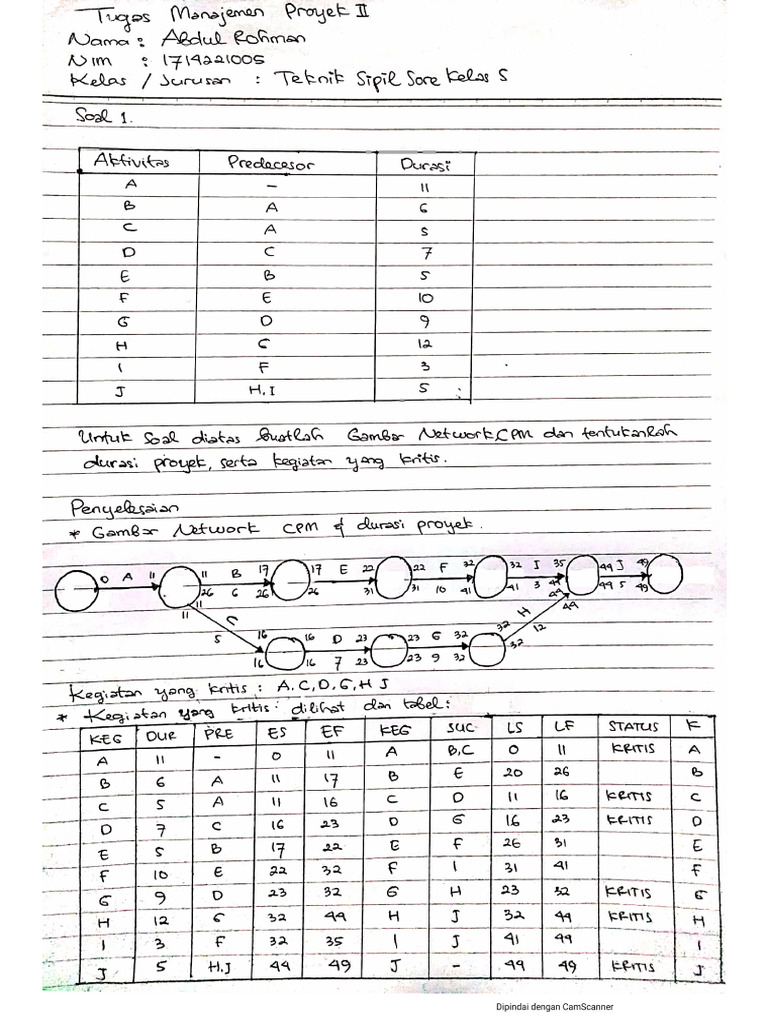 Tugas Manajemen Proyek II
Nama : Abdul Rohman
Nim : 1714221005
Kelas / Jurusan : Teknik Sipil Sore Kelas S
Soal 1.
Aktivitas Predecesor Durasi
A - 11
B A 6
C A 5
D C 7
E B 5
F E 10
G D 9
H G 12
I F 3
J H,I 5
Untuk Soal diatas buatlah Gambar Network CPM dan tentukanlah
durasi proyek, serta kegiatan yang kritis.
Penyelesaian
* Gambar Network CPM & durasi proyek.
0 A 11 11 B 17 17 E 22 22 F 32 32 I 35 44 J 49
26 6 26 26 31 31 10 41 41 3 44 44 5 49
11 11 C 5 44 44 H 12
16 16 D 23 23 G 32 32
16 16 7 23 23 9 32 32
Kegiatan yang kritis : A,C,D,G,H J
* Kegiatan yang kritis : dilihat dari tabel:
KEG DUR PRE ES EF KEG SUC LS LF STATUS K
A 11 - 0 11 A B,C 0 11 KRITIS A
B 6 A 11 17 B E 20 26 B
C 5 A 11 16 C D 11 16 KRITIS C
D 7 C 16 23 D G 16 23 KRITIS D
E 5 B 17 22 E F 26 31 E
F 10 E 22 32 F I 31 41 F
G 9 D 23 32 G H 23 32 KRITIS G
H 12 G 32 44 H J 32 44 KRITIS H
I 3 F 32 35 I J 41 44 I
J 5 H,J 44 49 J - 44 49 KRITIS J
Dipindai dengan CamScanner